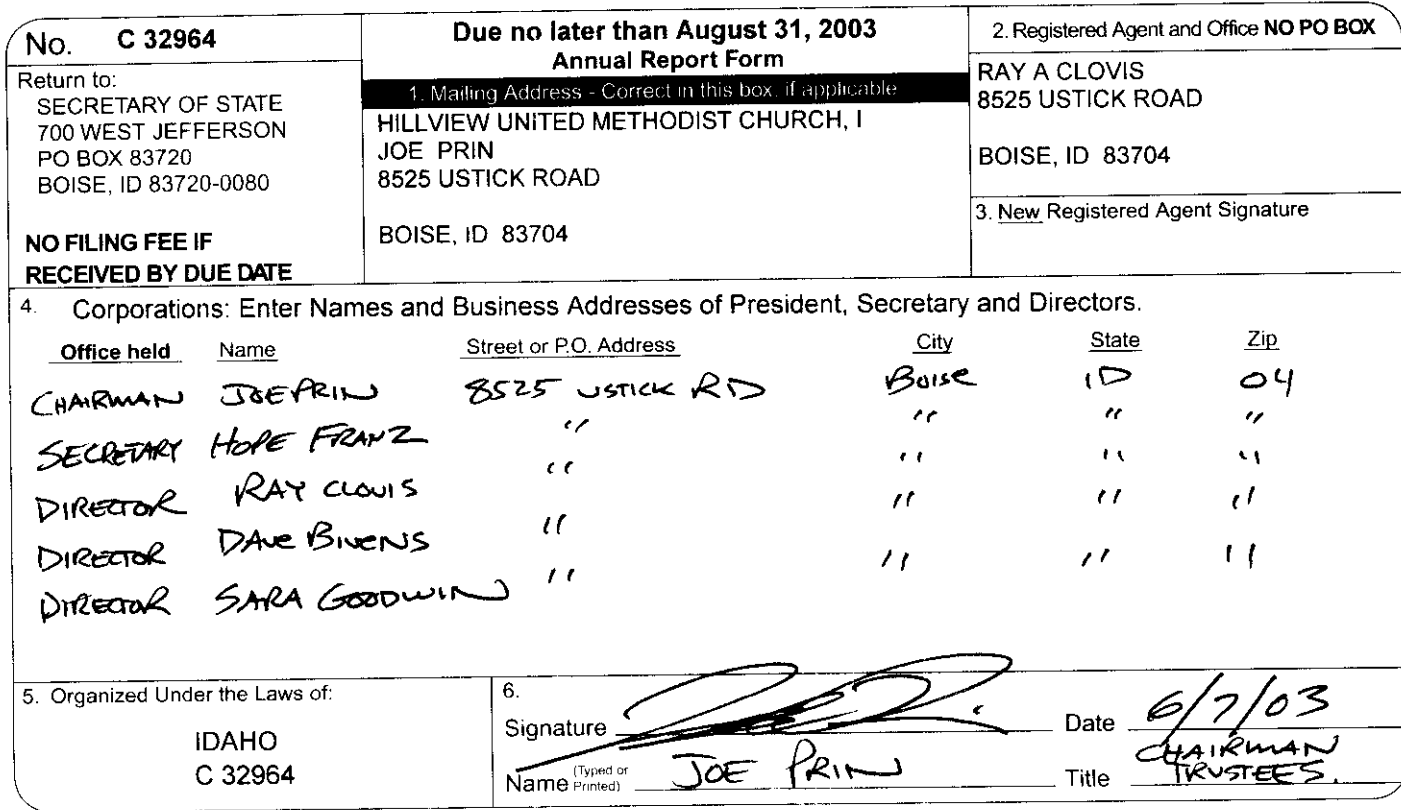 No. C 32964
Return to:
SECRETARY OF STATE
700 WEST JEFFERSON
PO BOX 83720
BOISE, ID 83720-0080
NO FILING FEE IF
RECEIVED BY DUE DATE
Due no later than August 31, 2003
Annual Report Form
1. Mailing Address - Correct in this box, if applicable
HILLVIEW UNITED METHODIST CHURCH, I
JOE PRIN
8525 USTICK ROAD
BOISE, ID 83704
2. Registered Agent and Office NO PO BOX
RAY A CLOVIS
8525 USTICK ROAD
BOISE, ID 83704
3. New Registered Agent Signature
4. Corporations: Enter Names and Business Addresses of President, Secretary and Directors.
Office held Name Street or P.O. Address City State Zip
CHAIRMAN JOE PRIN 8525 USTICK RD BOISE ID 04
SECRETARY HOPE FRANZ " " " "
DIRECTOR RAY CLOVIS " " " "
DIRECTOR DAVE BIVENS " " " "
DIRECTOR SARA GOODWIN " " " "
5. Organized Under the Laws of:
IDAHO
C 32964
6.
Signature Date 6/7/03
Name (Typed or Printed) JOE PRIN Title CHAIRMAN TRUSTEES.